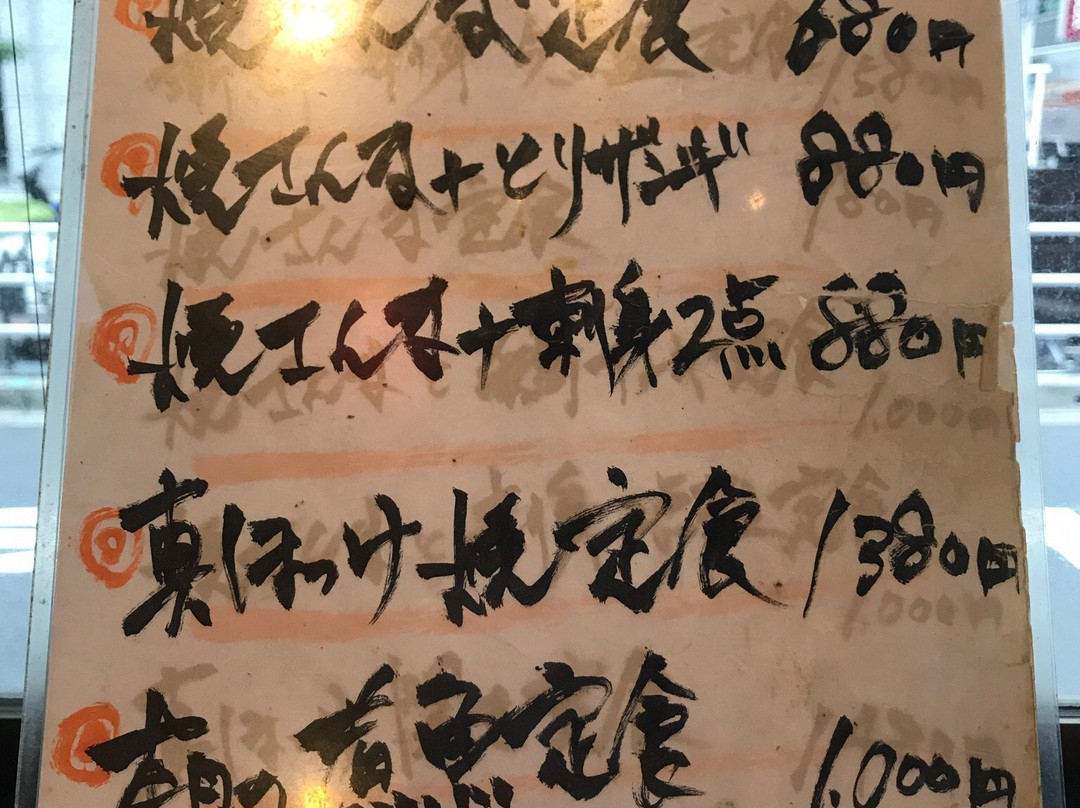 焼さんま定食 680円
焼さんま+とりザンギ 880円
焼さんま+刺身2点 880円
真ほっけ焼定食 1380円
煮魚定食 1,000円